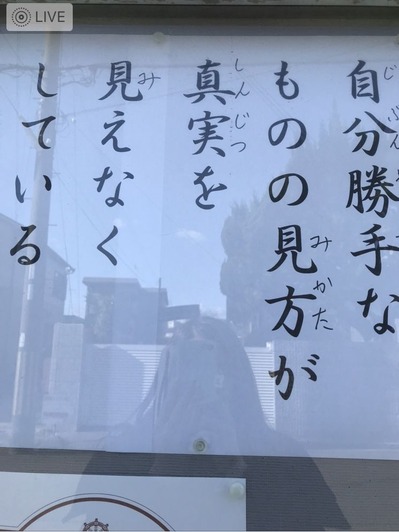 LIVE
自分勝手な
ものの見方が
真実を
見えなく
している
じぶん
みかた
しんじつ
み